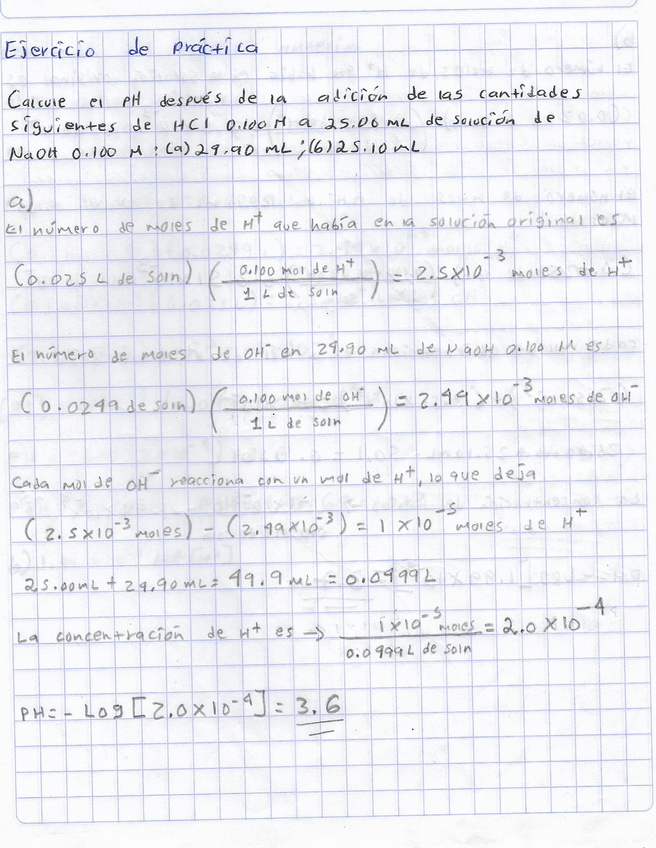 Ejercicio de práctica
Calcule el pH después de la adición de las cantidades
siguientes de HCl 0.100 M a 25.00 mL de solución de
NaOH 0.100 M : (a) 24.90 mL ; (b) 25.10 mL
a)
El número de moles de H⁺ que había en la solución original es
(0.025 L de soln) (0.100 mol de H⁺ / 1 L de soln) = 2.5x10⁻³ moles de H⁺
El número de moles de OH⁻ en 24.90 mL de NaOH 0.100 M es
(0.0249 de soln) (0.100 mol de OH⁻ / 1 L de soln) = 2.49x10⁻³ moles de OH⁻
Cada mol de OH⁻ reacciona con un mol de H⁺, lo que deja
(2.5x10⁻³ moles) - (2.49x10⁻³) = 1 x10⁻⁵ moles de H⁺
25.00mL + 24.90 mL = 49.9 mL = 0.0499L
La concentración de H⁺ es → 1x10⁻⁵ moles / 0.0499L de soln = 2.0 x10⁻⁴
PH = - Log [2.0x10⁻⁴] = 3.6